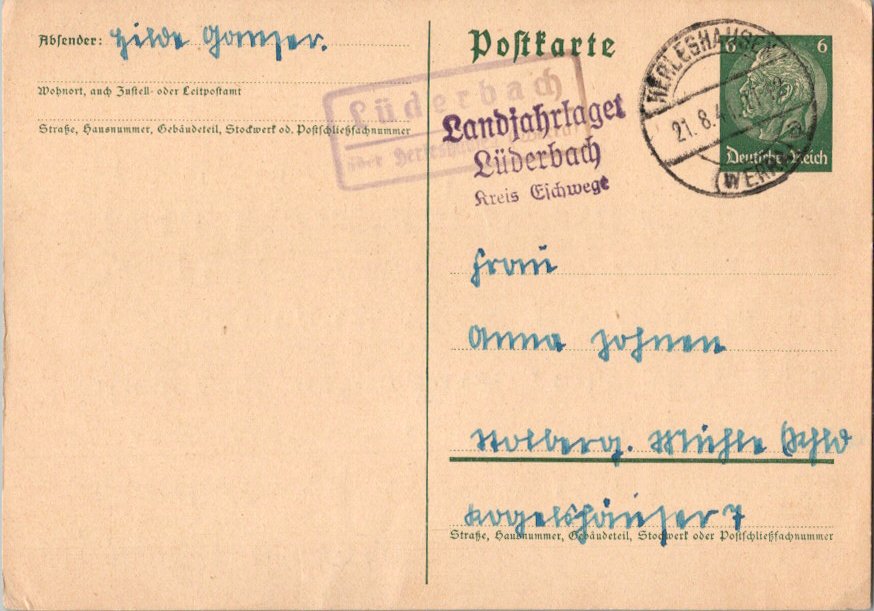 Absender: Hilde Ganser.
Wohnort, auch Zustell- oder Leitpostamt
Straße, Hausnummer, Gebäudeteil, Stockwerk od. Postschließfachnummer
Postkarte
Lüderbach
über
Landjahrlager
Lüderbach
Kreis Eschwege
HERLESHAUSEN
21.8.4
(WERRA)
6 6
Deutsches Reich
Frau
Anna Johnen
Stolberg. Mühle
Kogelshäuser 7
Straße, Hausnummer, Gebäudeteil, Stockwerk oder Postschließfachnummer